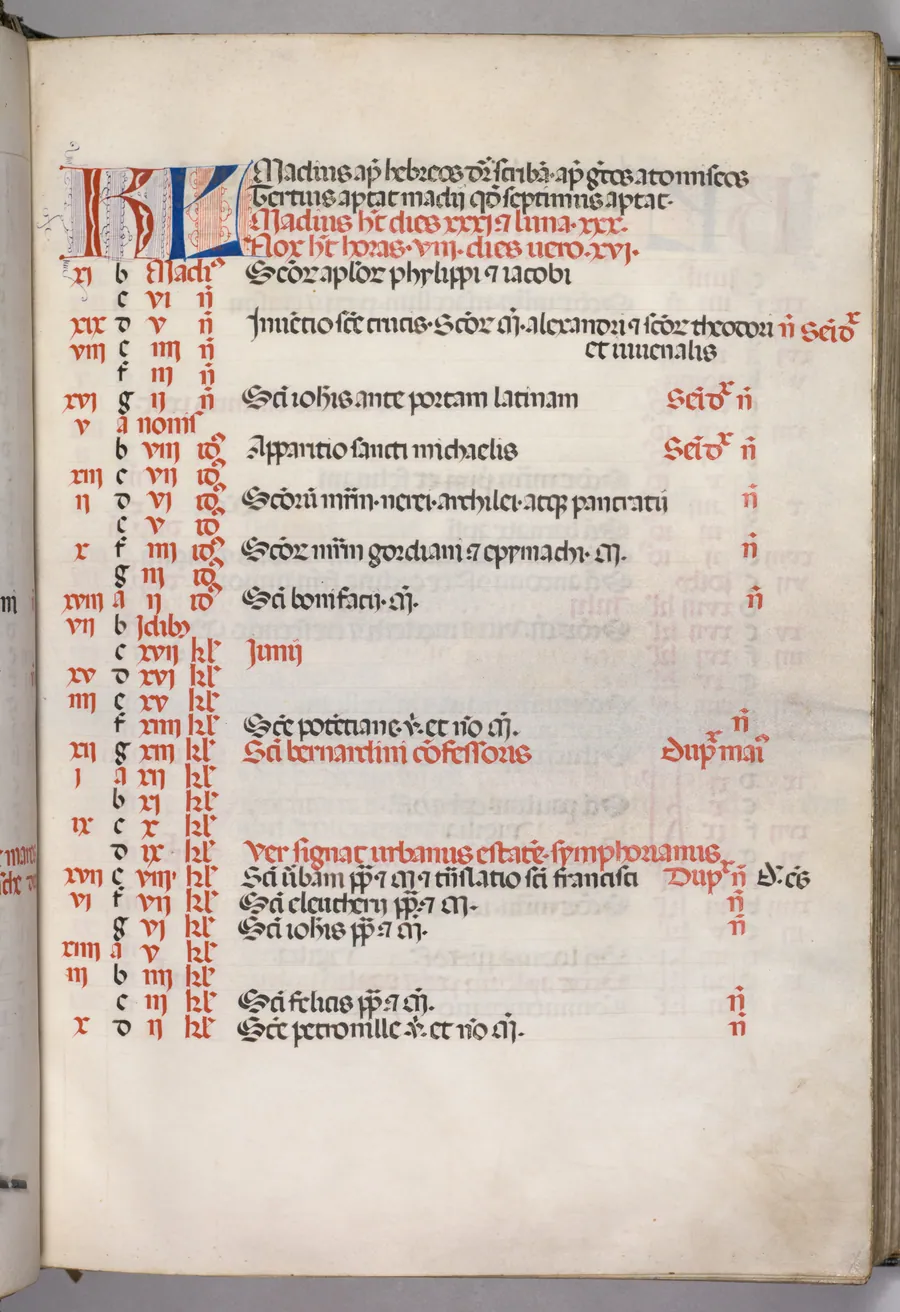 KL Madius ap̄ hebreos dr̄ scriba· ap̄ gr̄cos atomiscos
Tertius aptat madij qd̄ septimus aptat·
Madius ht̄ dies xxxj ⁊ luna· xxx·
Nox ht̄ horas· viii· dies uero· xvj·
xj b Madiꝰ Scōꝝ aplōꝝ phylippi ⁊ iacobi
c vi n̄
xix d v n̄ Inuētio scē crucis· Scōꝝ m̄· alexandri ⁊ scōꝝ theodori n̄ Semidx
viii e iiii n̄ et iuuenalis
f iii n̄
xvi g ii n̄ Scī iohis ante portam latinam Semidx n̄
v a nonis
b viii id' Apparitio sancti michaelis Semidx n̄
xiii c vii id'
ii d vi id' Scōrū mr̄m· nerei· archilei· atqꝫ pancratii n̄
e v id'
x f iiii id' Scōꝝ mr̄m gordiani ⁊ epymachi· m̄· n̄
g iii id'
xviii a ii id' Scī bonifacij· m̄· n̄
vii b Idibꝫ
c xvii kl' Iunij
xv d xvj kl'
iiii e xv kl'
f xiiii kl' Scē potētiane· v̄· et nō m̄· n̄
xii g xiii kl' Scī bernardini cōfessoris Dup̄ maiꝰ
j a xii kl'
b xj kl'
ix c x kl'
d ix kl' Ver signat urbanus estatē· symphorianus·
xvii e viii· kl' Scī ūbani pp̄ ⁊ m̄ ⁊ trn̄slatio scī francisci Dupx n̄ d· cs̄
vi f vii kl' Scī eleutherij pp̄· ⁊ m̄· n̄
g vj kl' Scī iohis pp̄· ⁊ m̄· n̄
xiiii a v kl'
iii b iiii kl'
c iii kl' Scī felicis pp̄· ⁊ m̄· n̄
x d ii kl' Scē petronille v̄· et nō m̄· n̄